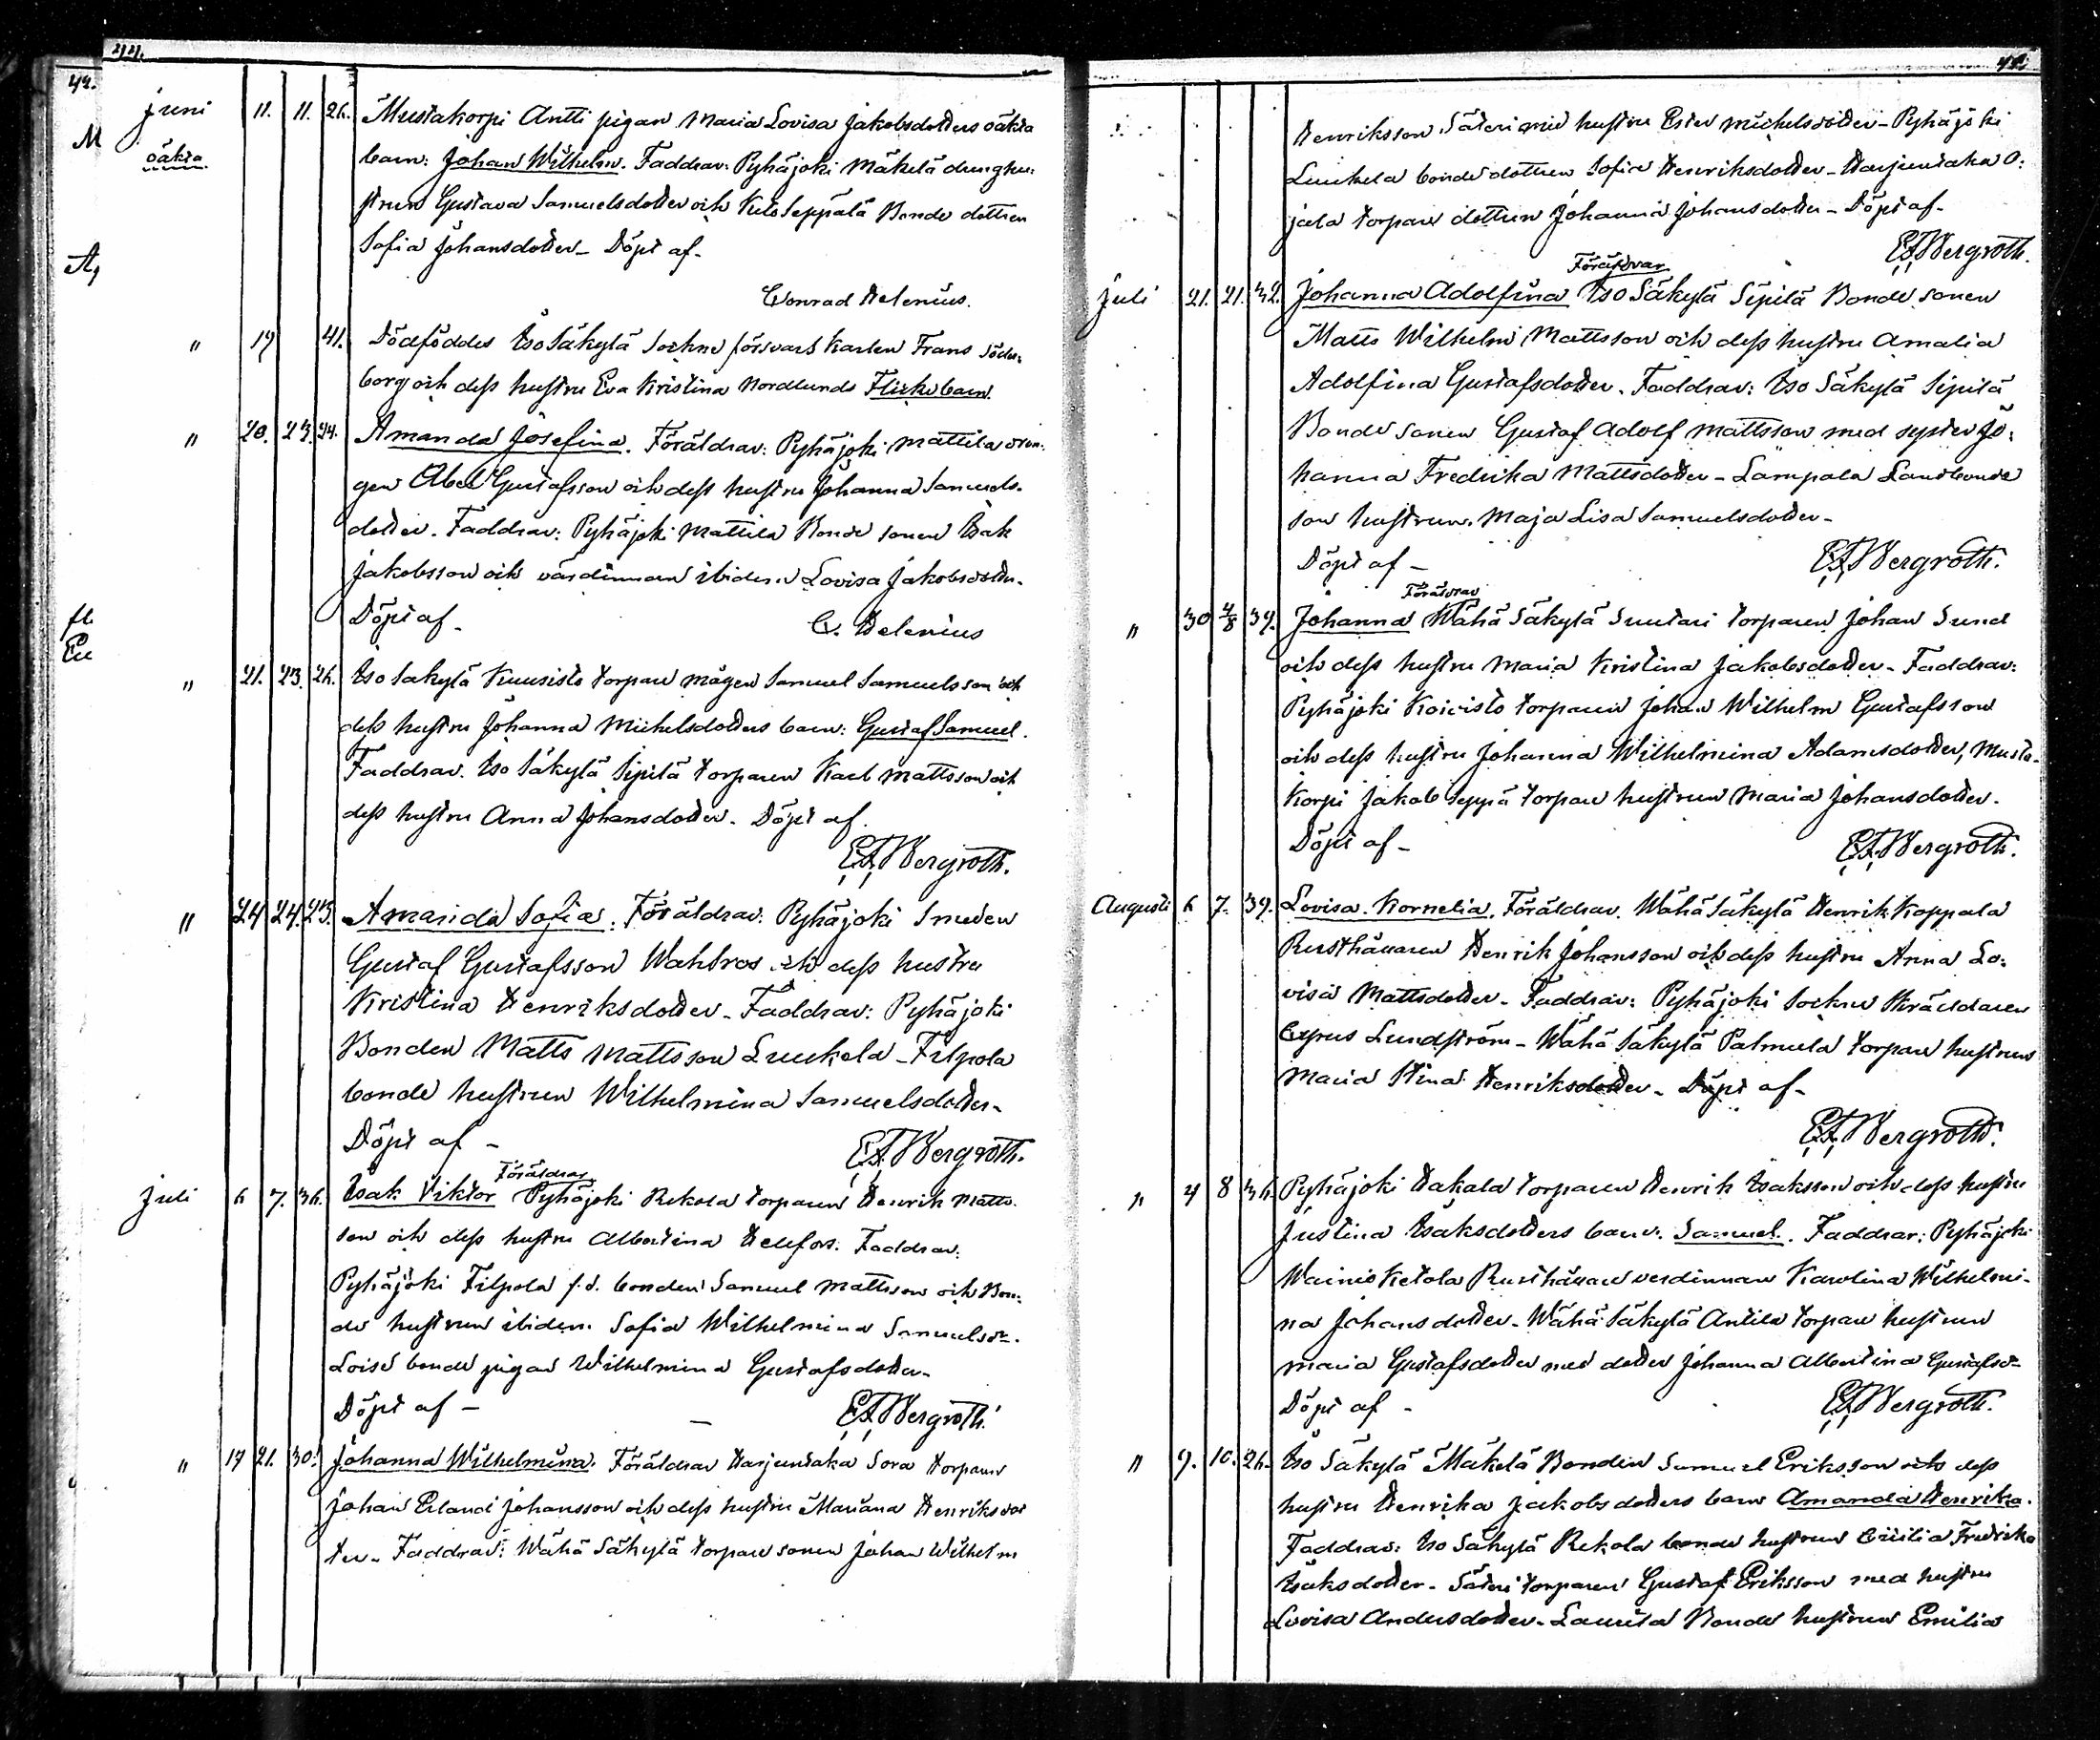 44.
42.
M
A,
fl
Eu
juni 11. 11. 26. Mustakorpi Antti pigan Maria Lovisa Jakobsdotters oäkta
oäkta barn: Johan Wilhelm. Faddrar: Pyhäjoki Mäkelä dränghu:
strun Gustava Samuelsdotter och Seppälä Bonde dottren
Sofia Johansdotter – Döpt af –
Conrad Helenius.
" 19 41. Dödföddes Iso Säkylä Sockne försvars karlen Frans Söder:
borg och dess hustru Eva Kristina Nordlunds Flickebarn.
" 20. 23. 24. Amanda Josefina. Föräldrar: Pyhäjoki Mattila drän:
gen Abel Gustafsson och dess hustru Johanna Samuels-
dotter. Faddrar: Pyhäjoki Mattila Bonde sonen Isak
Jakobsson och värdinnan ibidem Lovisa Jakobsdotter.
Döpt af – C. Helenius
" 21. 23. 26. Iso Säkylä Kuusisto torpare mågen Samuel Samuelsson och
dess hustru Johanna Michelsdotters barn: Gustaf Samuel.
Faddrar. Iso Säkylä Sipilä torparen Karl Mattsson och
dess hustru Anna Johansdotter. Döpt af
E.F. Bergroth.
" 24 24. 25. Amanda Sofia. Föräldrar: Pyhäjoki Smeden
Gustaf Gustafsson Wahlros och dess hustru
Kristina Henriksdotter – Faddrar: Pyhäjoki
Bonden Matts Mattsson Luukela – Filpola
bonde hustrun Wilhelmina Samuelsdotter –
Döpt af – E.F. Bergroth.
Föräldrar
juli 6 7. 36. Isak Viktor Pyhäjoki Rekola torparen Henrik Matts-
son och dess hustru Albertina Helefors. Faddrar:
Pyhäjoki Filpola f.d. bonden Samuel Mattsson och Bon:
de hustrun ibidem Sofia Wilhelmina Samuelsdr.
bonde pigan Wilhelmina Gustafsdotter –
Döpt af – E.F. Bergroth.
" 19 21. 30. Johanna Wilhelmina. Föräldrar Harjuntaka Sora torparen
Johan Erland Johansson och dess hustru Mariana Henriksdot
ter – Faddrar: Wähä Säkylä torpare sonen Johan Wilhelm
Henriksson Säteri med hustru Ester Michelsdotter – Pyhäjoki
Luukela bonde dottren Sofia Henriksdotter – Harjuntaka O:
jala torpare dottren Johanna Johansdotter – Döpt af –
E.F. Bergroth.
Föräldrar
juli 21. 21. 32. Johanna Adolfina Iso Säkylä Sipilä Bonde sonen
Matts Wilhelm Mattsson och dess hustru Amalia
Adolfina Gustafsdotter. Faddrar: Iso Säkylä Sipilä
Bonde sonen Gustaf Adolf Mattsson med syster Jo:
hanna Fredrika Mattsdotter – Lampala Landbonde
son hustrun Maja Lisa Samuelsdotter –
Döpt af – E.F. Bergroth.
Föräldrar
" 30 4/8 39. Johanna Wähä Säkylä Suutari torparen Johan Sund
och dess hustru Maria Kristina Jakobsdotter – Faddrar:
Pyhäjoki Koivisto torparen Johan Wilhelm Gustafsson
och dess hustru Johanna Wilhelmina Adamsdotter, Musta-
korpi Jakob Seppä torpare hustrun Maria Johansdotter.
Döpt af – E.F. Bergroth.
Augusti 6 7. 39. Lovisa Kornelia. Föräldrar. Wähä Säkylä Henrik Kappala
Rusthållaren Henrik Johansson och dess hustru Anna Lo:
visa Mattsdotter – Faddrar: Pyhäjoki Sockne Skräddaren
Cyrus Lundström – Wähä Säkylä Palmula torpare hustrun
Maria Stina Henriksdotter – Döpt af –
E.F. Bergroth.
" 4 8 36 Pyhäjoki Hakala torparen Henrik Isaksson och dess hustru
Justina Isaksdotters barn. Samuel. Faddrar: Pyhäjoki
Wainio Ketola Rusthållare värdinnan Karolina Wilhelmi-
na Johansdotter – Wähä Säkylä Antila torpare hustrun
Maria Gustafsdotter med dotter Johanna Albertina Gustafsdr
Döpt af – E.F. Bergroth.
" 9. 10. 26. Iso Säkylä Mäkelä Bonden Samuel Eriksson och dess
hustru Henrika Jakobsdotters barn Amanda Henrika.
Faddrar: Iso Säkylä Rekola bonde hustrun Cecilia Fredrika
Isaksdotter – Säteri torparen Gustaf Eriksson med hustru
Lovisa Andersdotter – Laurila Bonde hustrun Emilia